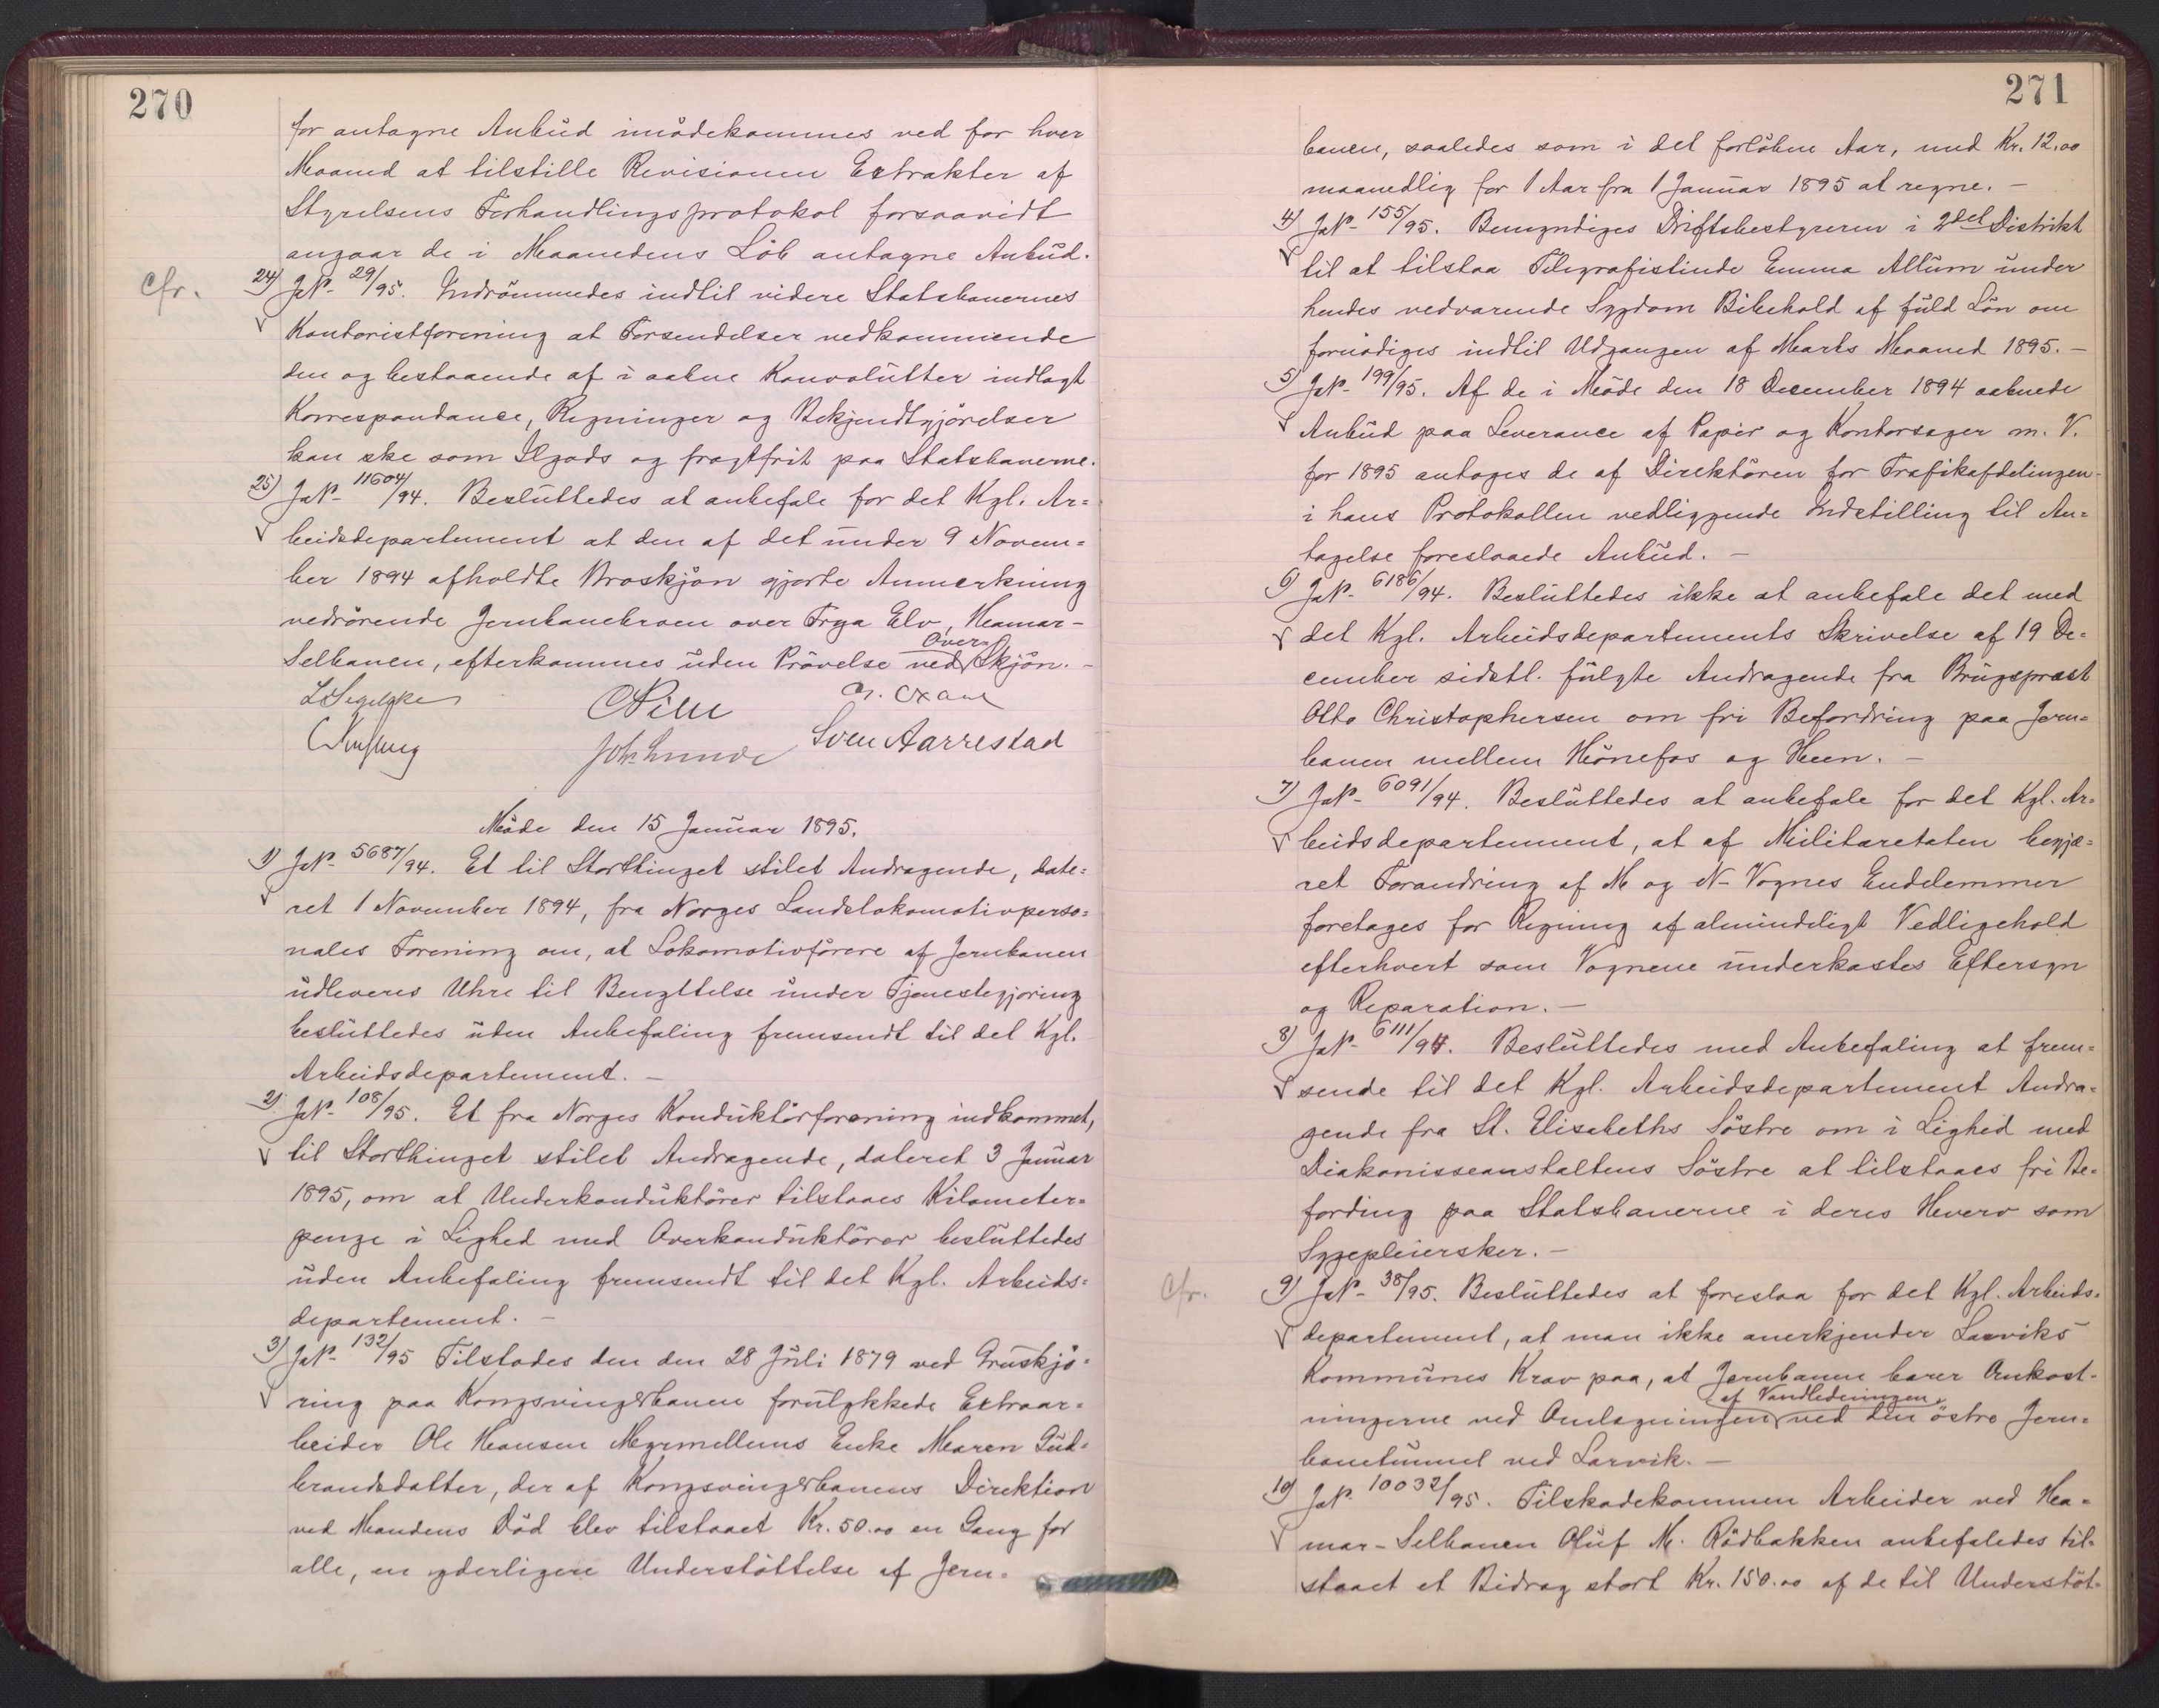 270
for antagne Anbud imødekommes ved for hver
Maaned at tilstille Revisionen Extrakter af
Styrelsens Forhandlingsprotokol forsaavidt
angaar de i Maanedens Løb antagne Anbud.
cfr.
24) JN- 29/95. Indrømmedes indtil videre Statsbanernes
Kontoristforening at Forsendelser vedkommende
den og bestaaende af i aabne Konvolutter indlagt
Korrespondance, Regninger og Bekjendtgjørelser
kan ske som Ilgods og fragtfrit paa Statsbanerne.
25) JN- 11604/94. Besluttedes at anbefale for det Kgl. Ar=
beidsdepartement at den af det under 9 Novem=
ber 1894 afholdte Broskjøn gjorte Anmerkning
vedrørende Jernbanebroen over Frya Elv, Hamar-
Selbanen, efterkommes uden Prøvelse ved Over Skjøn. -
L Segelcke
Joh. Lunde
Sven Aarrestad
Møde den 15 Januar 1895.
1) JN- 5687/94. Et til Storthinget stilet Andragende, date=
ret 1 November 1894, fra Norges Landslokomotivperso=
nales Forening om, at Lokomotivførere af Jernbanen
udleveres Uhre til Benyttelse under Tjenestegjøring
besluttedes uden Anbefaling fremsendt til det Kgl.
Arbeidsdepartement. -
2) JN- 108/95. Et fra Norges Konduktørforening indkommet,
til Storthinget stilet Andragende, dateret 3 Januar
1895, om at Underkonduktører tilstaaes Kilometer=
penge i Lighed med Overkonduktører besluttedes
uden Anbefaling fremsendt til det Kgl. Arbeids=
departement. -
3) JN- 132/95 Tilstodes den den 28 Juli 1879 ved Gruskjø=
ring paa Kongsvingerbanen forulykkede Extraar=
beider Ole Hansen Myrmellems Enke Maren Gud=
brandsdatter, der af Kongsvingerbanens Direktion
ved Mandens Død blev tilstaaet Kr. 50.00 en Gang for
alle, en yderligere Understøttelse af Jern=
271
banen, saaledes som i det forløbne Aar, med Kr. 12.00
maanedlig for 1 Aar fra 1 Januar 1895 at regne. -
4) JN- 155/95. Bemyndiges Driftsbestyreren i 2det Distrikt
til at tilstaa Telegrafistinde Emma Allum under
hendes vedvarende Sygdom Bibehold af fuld Løn om
fornødiges indtil Udgangen af Marts Maaned 1895. -
5) JN- 199/95. Af de i Møde den 18 December 1894 aabnede
Anbud paa Leverance af Papir og Kontorsager m. V.
for 1895 antoges de af Direktøren for Trafikafdelingen
i hans Protokollen vedliggende Indstilling til An=
tagelse foreslaaede Anbud. -
6) JN- 6186/94. Besluttedes ikke at anbefale det med
det Kgl. Arbeidsdepartements Skrivelse af 19 De=
cember sidstl. fulgte Andragende fra Brugsprest
Otto Christophersen om fri Befordring paa Jern=
banen mellem Hønefos og Heen. -
7) JN- 6091/94. Besluttedes at anbefale for det Kgl. Ar=
beidsdepartement, at af Militæretaten begjæ=
ret Forandring af M og N- Vognes Endelemmer
foretages for Regning af almindeligt Vedligehold
efterhvert som Vognene underkastes Eftersyn
og Reparation. -
8) JN- 6111/94. Besluttedes med Anbefaling at frem=
sende til det Kgl. Arbeidsdepartement Andra=
gende fra St. Elisabeths Søstre om i Lighed med
Diakonisseanstaltens Søstre at tilstaaes fri Be=
fording paa Statsbanerne i deres Hverv som
Sygepleiersker. -
cfr.
9) JN- 38/95. Besluttedes at foreslaa for det Kgl. Arbeids=
departement, at man ikke anerkjender Larviks
Kommunes Krav paa, at Jernbanen bærer Omkost-
ningerne ved Omlægningen af Vandledningen ved den østre Jern=
banetunnel ved Larvik. -
10) JN- 10032/95. Tilskadekommen Arbeider ved Ha=
mar-Selbanen Oluf M. Rødbakken anbefaledes til=
staaet et Bidrag stort Kr. 150.00 af de til Understøt=